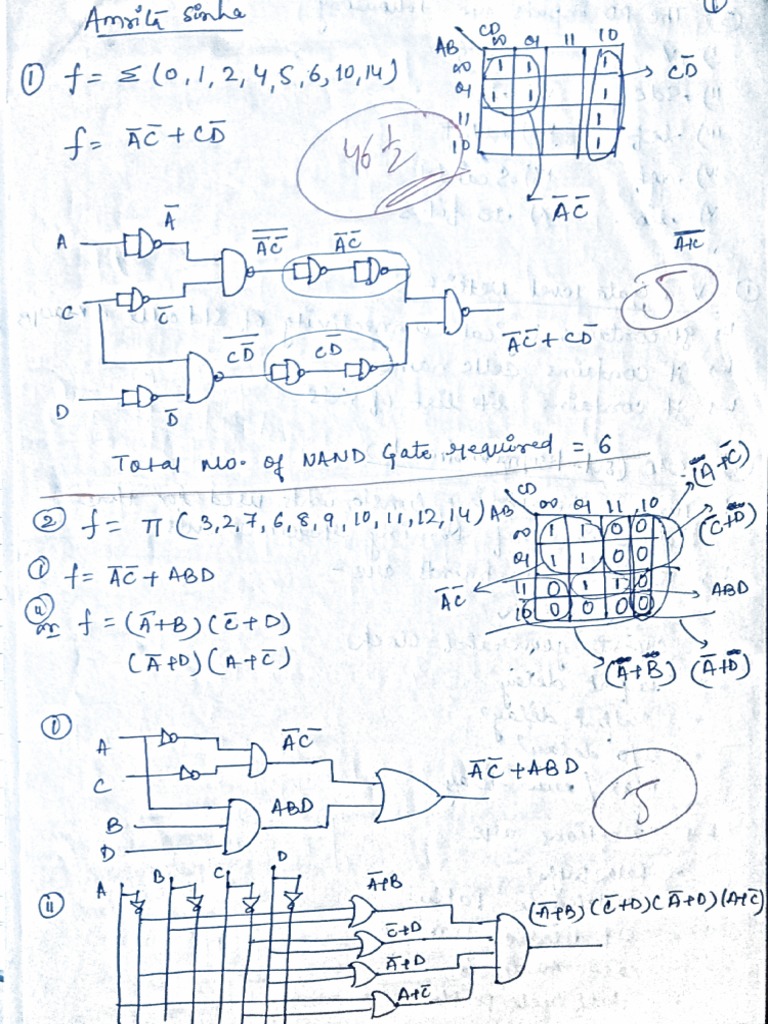 Amrita Sinha
① f = Σ (0, 1, 2, 4, 5, 6, 10, 14)
f = A̅C̅ + CD̅
46 1/2
AB CD 00 01 11 10
00 1 1 1
01 1 1 1
11 1
10 1
CD̅
A̅C̅
A A̅
C C̅
D D̅
\overline{A̅C̅} A̅C̅
\overline{CD̅} CD̅
A̅C̅ + CD̅
5
Total no. of NAND Gate required = 6
② f = π (3, 2, 7, 6, 8, 9, 10, 11, 12, 14)
① f = A̅C̅ + ABD
or f = (A̅+B) (C̅+D)
(A̅+D) (A+C̅)
AB CD 00 01 11 10
00 1 1 0 0
01 1 1 0 0
11 0 1 1 0
10 0 0 0 0
(A+C̅)
(C̅+D)
A̅C̅
ABD
(A̅+B) (A̅+D)
①
A
C
B
D
A̅C̅
ABD
A̅C̅ + ABD
5
ⅱ
A B C D
A̅+B
C̅+D
A̅+D
A+C̅
(A̅+B) (C̅+D) (A̅+D) (A+C̅)